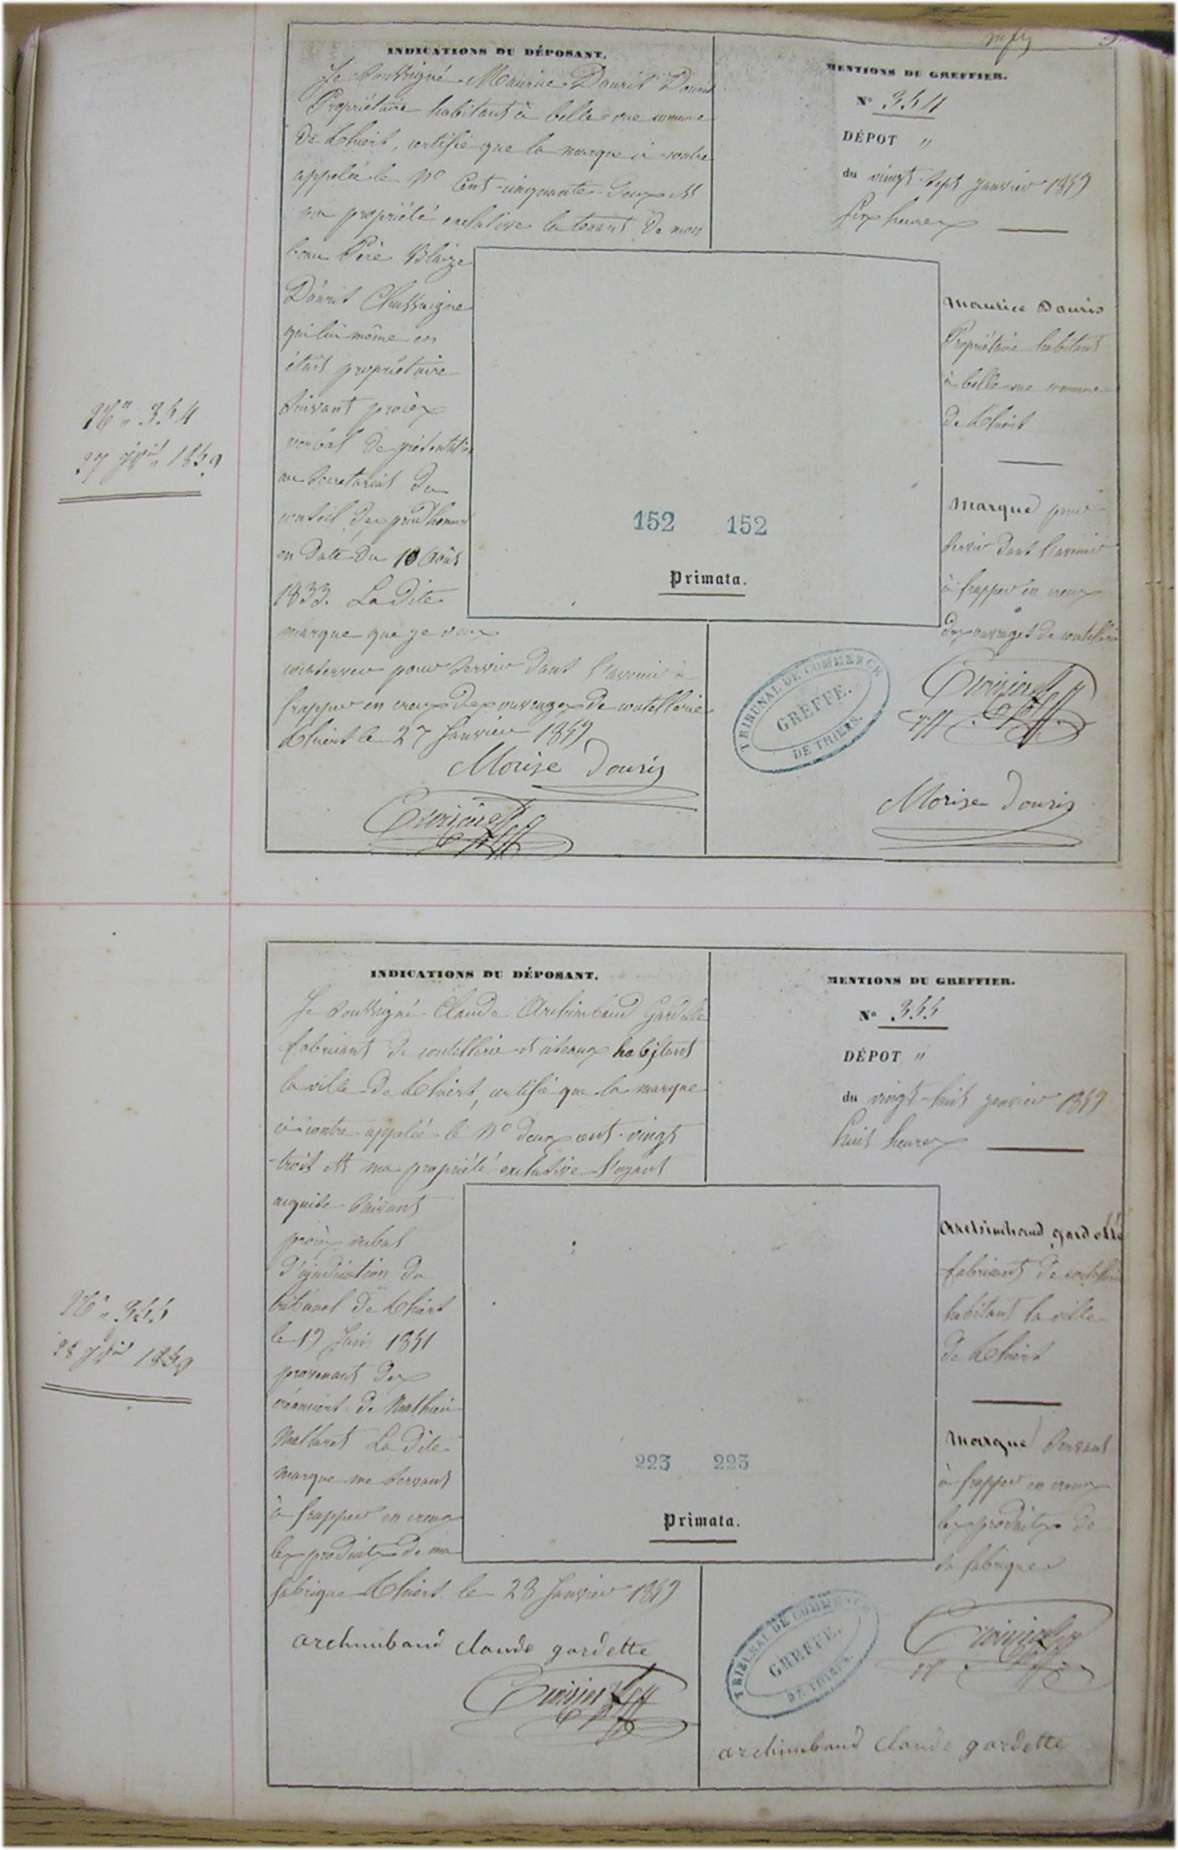 INDICATIONS DU DÉPOSANT.
Je soussigné Maurice Dauris Douris
Propriétaire habitant à belle vue commune
de Thiers, certifie que la marque ci contre
appelée le No Cent-cinquante-deux est
ma propriété exclusive la tenant de mon
beau Père Blaize
Dauris Chassaigne
qui lui même en
était propriétaire
suivant procès
verbal de présentation
au Secretariat du
conseil des prudhommes
en date du 10 Août
1833. La dite
marque que je veux
conserver pour servir dans l'avenir à
frapper en creux des ouvrages de coutellerie
Thiers le 27 Janvier 1859
Morise Douris
MENTIONS DU GREFFIER.
No 354
DÉPOT "
du vingt-sept janvier 1859
heures
Maurice Douris
Propriétaire habitant
à belle vue commune
de Thiers
Marque pour
servir dans l'avenir
à frapper en creux
des ouvrages de coutellerie
152 152
Primata.
TRIBUNAL DE COMMERCE
GREFFE.
DE THIERS.
Morise Douris
No 354
27 jer 1859
INDICATIONS DU DÉPOSANT.
Je soussigné Claude Archimbaud Gardette
fabricant de coutellerie et ciseaux habitant
la ville de Thiers, certifie que la marque
ci contre appelée le No deux cent-vingt
trois est ma propriété exclusive l'ayant
acquise suivant
procès verbal
d'ajudication du
tribunal de Thiers
le 19 Juin 1851
provenant des
créanciers de Mathieu
La dite
marque me servant
à frapper en creux
les produits de ma
fabrique Thiers le 28 Janvier 1859
archimbaud claude gardette
MENTIONS DU GREFFIER.
No 355
DÉPOT "
du vingt-huit janvier 1859
huit heures
Archimbaud gardette
fabricant de coutellerie
habitant la ville
de Thiers
Marque servant
à frapper en creux
les produits de
sa fabrique
223 223
Primata.
TRIBUNAL DE COMMERCE
GREFFE.
DE THIERS.
archimbaud claude gardette
No 355
28 jer 1859